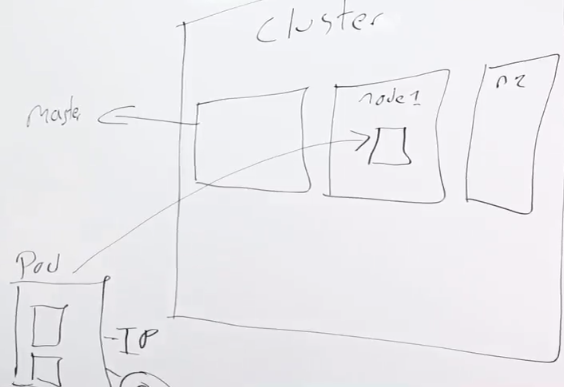 Cluster
Master
node1
n2
Pod
IP